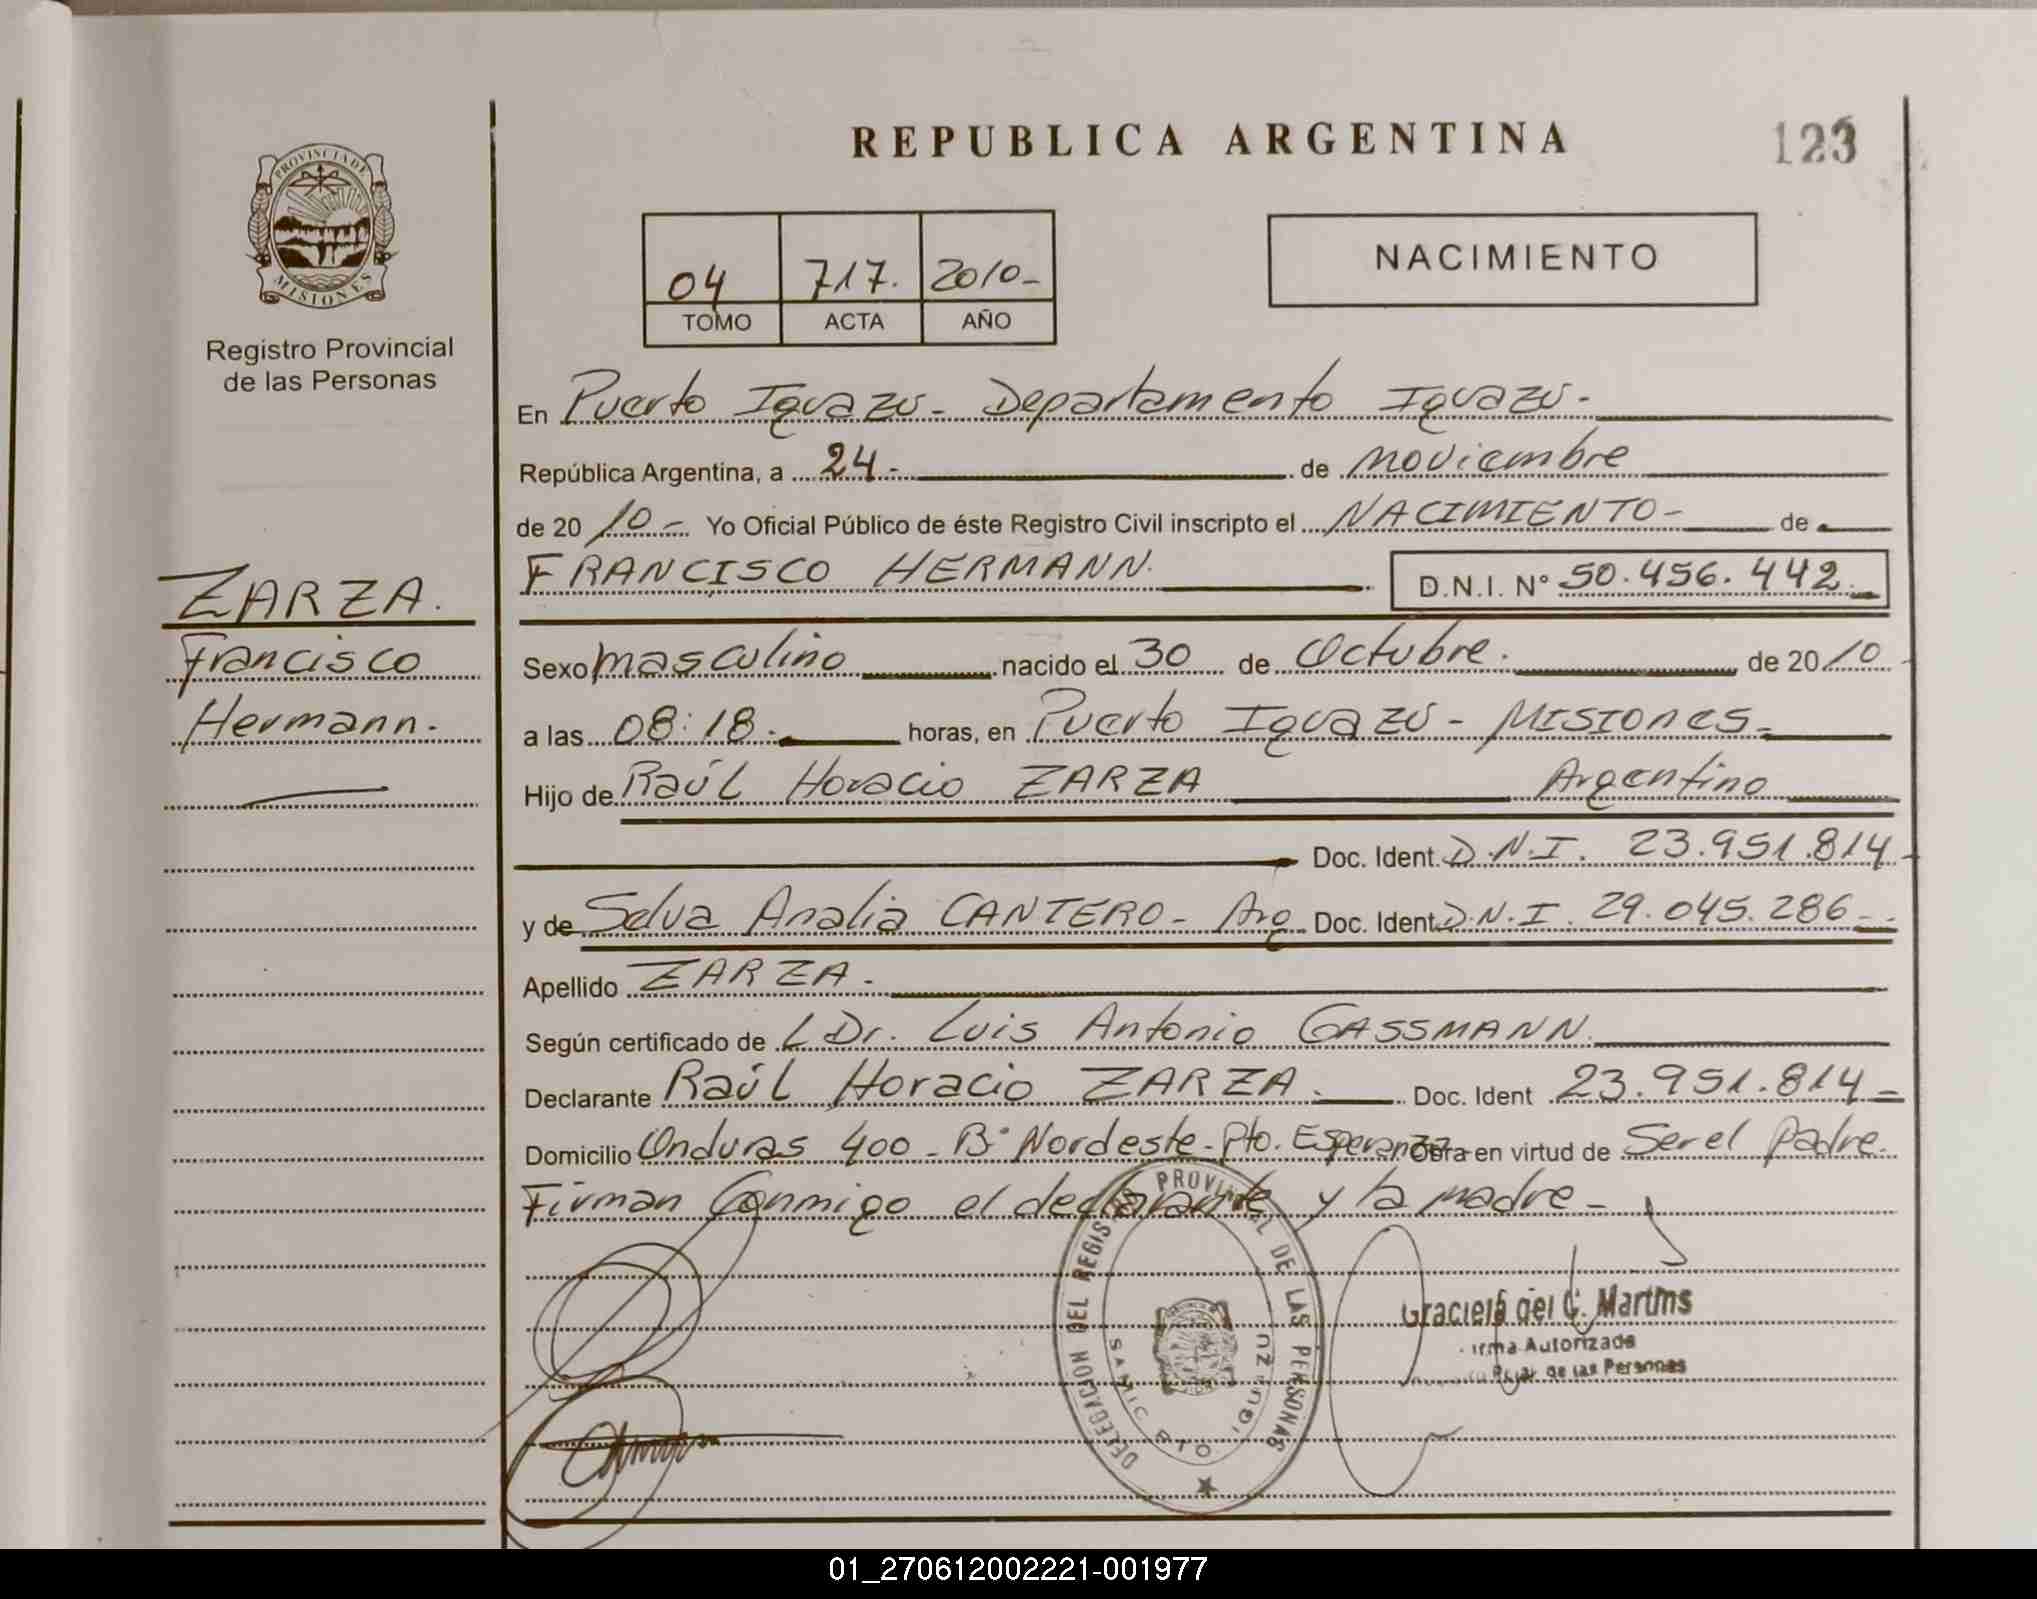 REPUBLICA ARGENTINA
123
PROVINCIA DE
MISIONES
Registro Provincial
de las Personas
04 717. 2010-
TOMO ACTA AÑO
NACIMIENTO
En Puerto Iguazú - Departamento Iguazú -
República Argentina, a 24 - de noviembre
de 20 10 - Yo Oficial Público de éste Registro Civil inscripto el NACIMIENTO - de
FRANCISCO HERMANN. D.N.I. N° 50.456.442
ZARZA.
Francisco
Hermann.
Sexo masculino nacido el 30 de Octubre. de 20 10
a las 08:18. horas, en Puerto Iguazú - Misiones -
Hijo de Raúl Horacio ZARZA Argentino
Doc. Ident. D.N.I. 23.951.814
y de Selva Analia CANTERO - Arg Doc. Ident. D.N.I. 29.045.286 -
Apellido ZARZA -
Según certificado de L Dr. Luis Antonio GASSMANN.
Declarante Raúl Horacio ZARZA. Doc. Ident 23.951.814 -
Domicilio Onduras 400 - B° Nordeste - Pto. Esperanza Obra en virtud de Ser el Padre.
Firman Conmigo el declarante y la madre -
DELEGACION DEL REGISTRO PROVINCIAL DE LAS PERSONAS
SAMIC PTO. IGUAZU
Graciela del C. Martins
Firma Autorizada
de las Personas
01_270612002221-001977